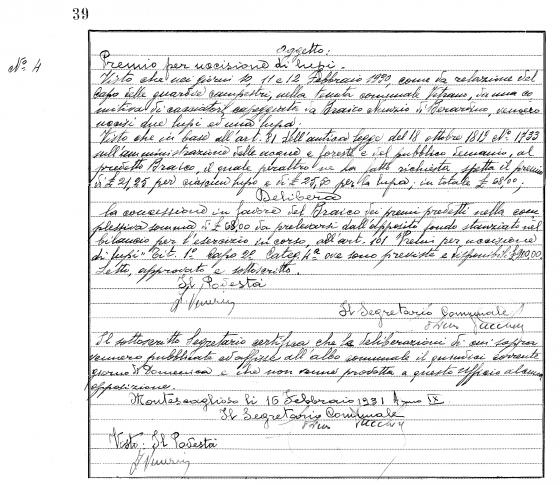 39
N° 4
Oggetto:
Premio per uccisione di lupi.
Visto che nei giorni 10, 11 e 12 Febbraio 1930 come da relazione del
Capo delle guardie campestri, nella tenuta comunale Vetrano, da una co
mitiva di cacciatori capeggiata da Braico Nunzio di Berardino, vennero
uccisi due lupi ed una lupa.
Visto che in base all'art. 31 dell'antica legge del 18 ottobre 1819 N° 1933
sull'amministrazione delle acque e foreste e del pubblico demanio, al
predetto Braico, il quale peraltro ne ha fatto richiesta spetta il premio
di £ 21,25 per ciascun lupo e di £ 25,50 per la lupa, in totale £ 68,00.
Delibera
la concessione in favore del Braico dei premi predetti nella com
plessiva somma di £ 68,00 da prelevarsi dall'apposito fondo stanziato nel
bilancio per l'esercizio in corso, all'art. 101 "Premi per uccisione
di lupi" Tit. 1° Capo 2° Categ. 4ª ove sono previste e disponibili £
Letto, approvato e sottoscritto.
Il Podestà
Il Segretario Comunale
Il sottoscritto Segretario certifica che la deliberazione di cui sopra
venne pubblicata ed affissa all'albo comunale il quindici corrente
giorno di Domenica e che non venne prodotta a questo Ufficio alcuna
opposizione.
Montescaglioso li 16 Febbraio 1931 Anno IX
Il Segretario Comunale
Visto: Il Podestà